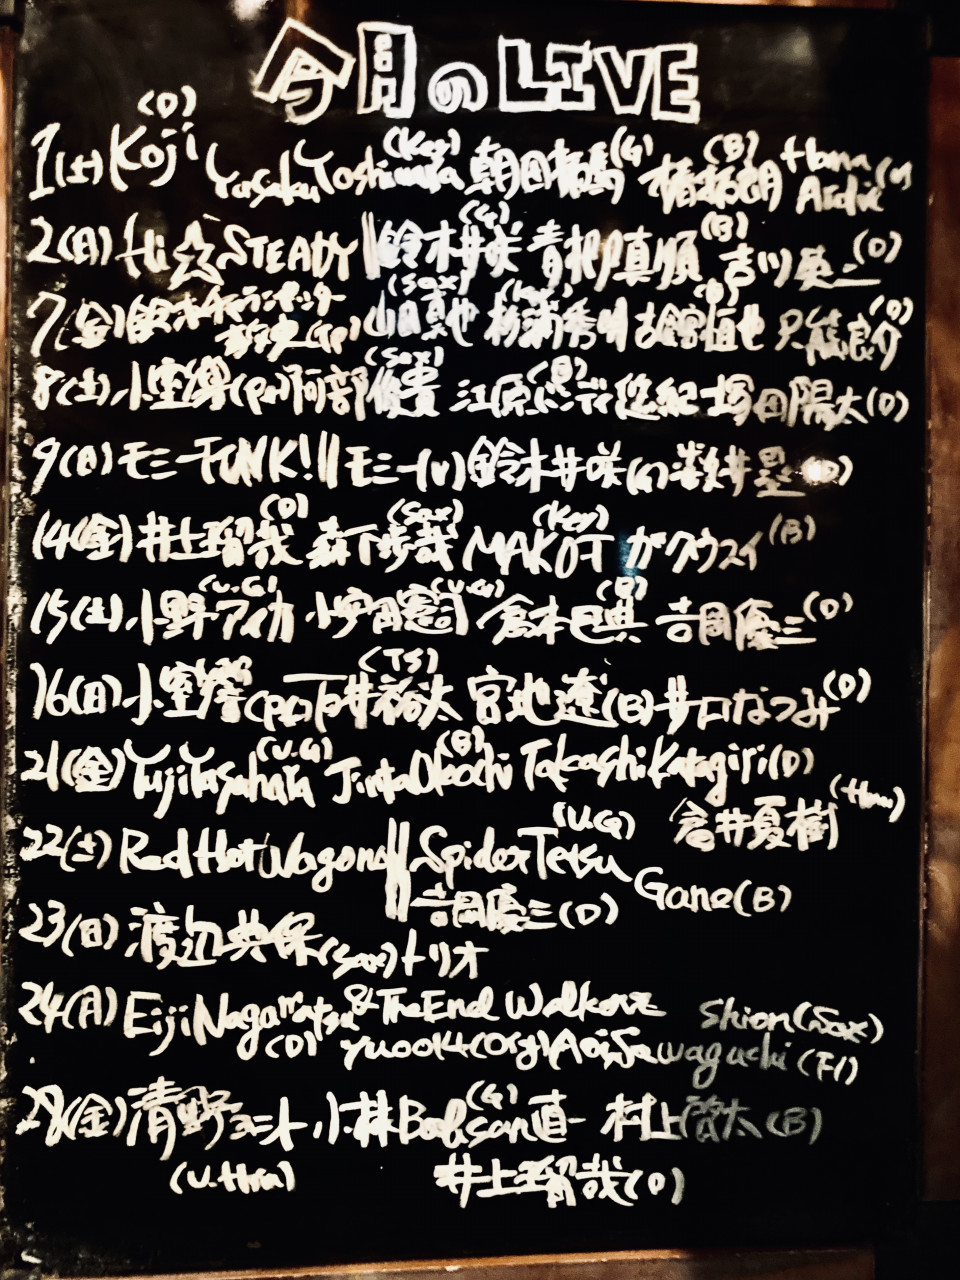 今月のLIVE
(D) (Key) (G) (B)
1(土)Koji Yasaku Yoshimata 朝田 椿拓朗 Hana
(G) (B)
2(日)Hi☆STEADY 鈴木井咲 青柳真順 吉川英二(D)
(Sax) (D)
7(金) (Tp) 山田真也 杉浦秀明 古舘恒也 只熊良介
(Sax) (B)
8(土)小室響(Pn)阿部 江原 悠紀 塚田陽太(D)
9(日)モミーFUNK!! モミー(V)鈴木井咲(G)数井塁(D)
(D) (Sax) (Key)
14(金)井上瑠哉 森下歩哉 MAKOT ガクウスイ(B)
(V.G) (V.G) (B)
15(土)小野アイカ 小宇田憲司 倉本巴典 吉岡優三(D)
(TS)
16(日)小室響(Pn)下井裕太 宮地遼(B)井口なつみ(D)
(V.G) (B)
21(金)Yuji Yasuhara Jinta Okochi Takashi Katagiri(D)
倉井夏樹(Harm)
(V.G)
22(土)Red Hot Wagons Spider Tetsu Gane(B)
吉岡優三(D)
23(日)渡辺典保(Sax)トリオ
24(月)Eiji Nagamatsu & The End Walkerz Shion(Sax)
(D) yuool4(Org) Aoi Sawaguchi(Fl)
(G)
28(金)清野ミナト 小林Bob.san直一 村上啓太(B)
井上瑠哉(D)